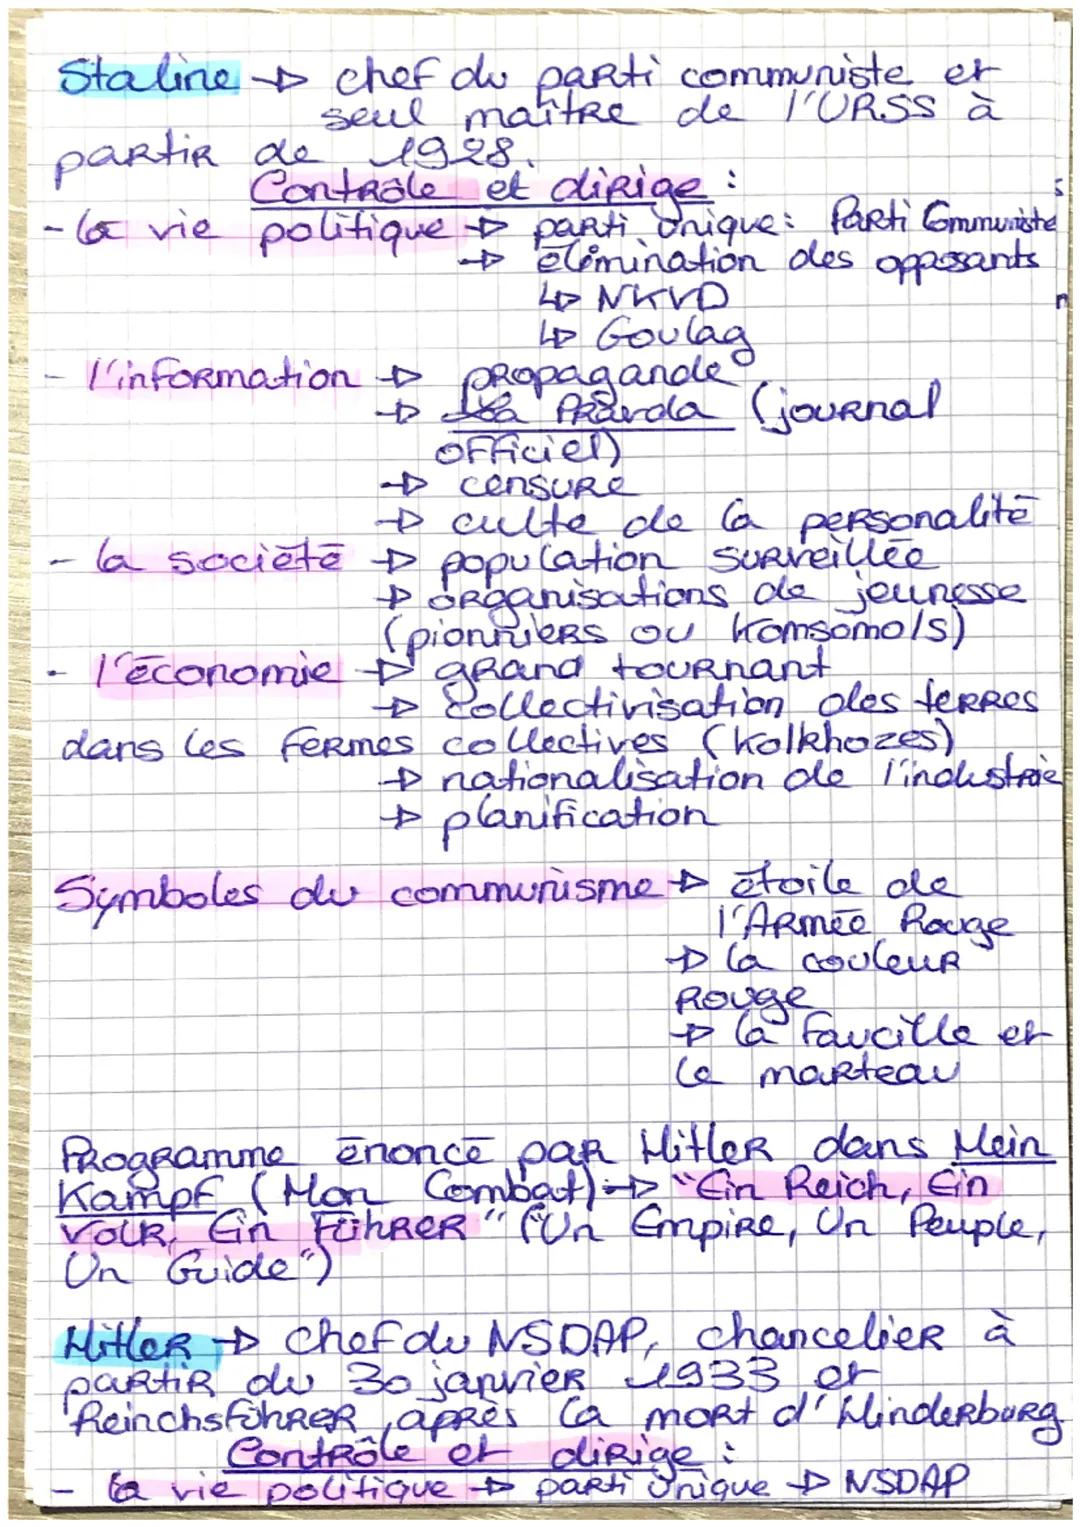 Staline → chef du parti communiste et
seul maître de l'URSS à
partir de 1928.
Contrôle et dirige :
- la vie politique → parti unique : Parti Communiste
→ élimination des opposants
↳ NKVD
↳ Goulag
- l'information → propagande
→ La Pravda (journal
officiel)
→ censure
→ culte de la personalité
- la société → population surveillée
→ organisations de jeunesse
(pionniers ou Komsomols)
- l'économie → grand tournant
→ collectivisation des terres
dans les fermes collectives (Kolkhozes)
→ nationalisation de l'industrie
→ planification
Symboles du communisme → étoile de
l'Armée Rouge
→ la couleur
rouge
→ la faucille et
le marteau
Programme énoncé par Hitler dans Mein
Kampf (Mon Combat) → "Ein Reich, Ein
Volk, Ein Führer" ("Un Empire, Un Peuple,
Un Guide")
Hitler → chef du NSDAP, chancelier à
partir du 30 janvier 1933 et
Reinchsführer après la mort d'Hinderburg
Contrôle et dirige :
- la vie politique → parti unique → NSDAP